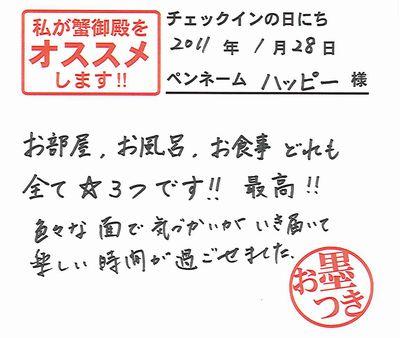 私が蟹御殿を
オススメ
します!!
チェックインの日にち
2011年 1月28日
ペンネーム ハッピー 様
お部屋、お風呂、お食事 どれも
全て☆3つです!! 最高!!
色々な面で気づかいがいき届いて
楽しい時間が過ごせました。
お墨つき